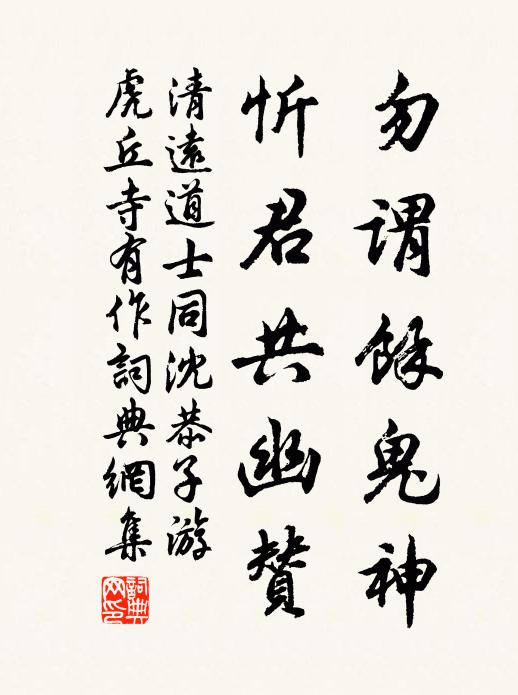 勿謂餘鬼神
忻君共幽赞
清遠道士同沈恭子游
虎丘寺有作詞典網集
詞典
网印